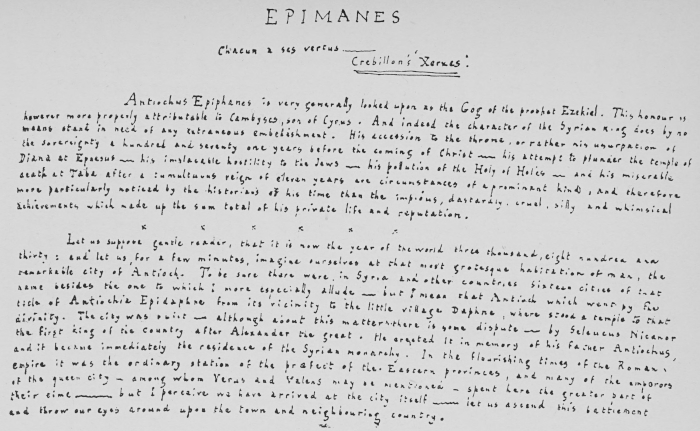 EPIMANES
Chacun a ses vertus ——
Crebillon's 'Xerxes'.
Antiochus Epiphanes is very generally looked upon as the Gog of the prophet Ezekiel. This honour is
however more properly attributable to Cambyses, son of Cyrus. And indeed the character of the Syrian king does by no
means stand in need of any extraneous embellishment. His accession to the throne, or rather his usurpation of
the sovereignty a hundred and seventy one years before the coming of Christ — his attempt to plunder the temple of
Diana at Ephesus — his implacable hostility to the Jews — his pollution of the Holy of Holies — and his miserable
death at Taba after a tumultuous reign of eleven years are circumstances of a prominent kind, and therefore
more particularly noticed by the historians of his time than the impious, dastardly, cruel, silly and whimsical
achievements which made up the sum total of his private life and reputation.
x x x x x
Let us suppose gentle reader, that it is now the year of the world three thousand, eight hundred and
thirty: and let us, for a few minutes, imagine ourselves at that most grotesque habitation of man, the
remarkable city of Antioch. To be sure there were, in Syria and other countries sixteen cities of that
name besides the one to which I more especially allude — but I mean that Antioch which went by the
title of Antiochia Epidaphne from its vicinity to the little village Daphne, where stood a temple to that
divinity. The city was built — although about this matter there is some dispute — by Seleucus Nicanor
the first king of the country after Alexander the great. He erected it in memory of his father Antiochus,
and it became immediately the residence of the Syrian monarchy. In the flourishing times of the Roman
empire it was the ordinary station of the præfect of the Eastern provinces, and many of the emperors
of the queen city — among whom Verus and Valens may be mentioned — spent here the greater part of
their time —— but I perceive we have arrived at the city itself —— let us ascend this battlement
and throw our eyes around upon the town and neighbouring country.